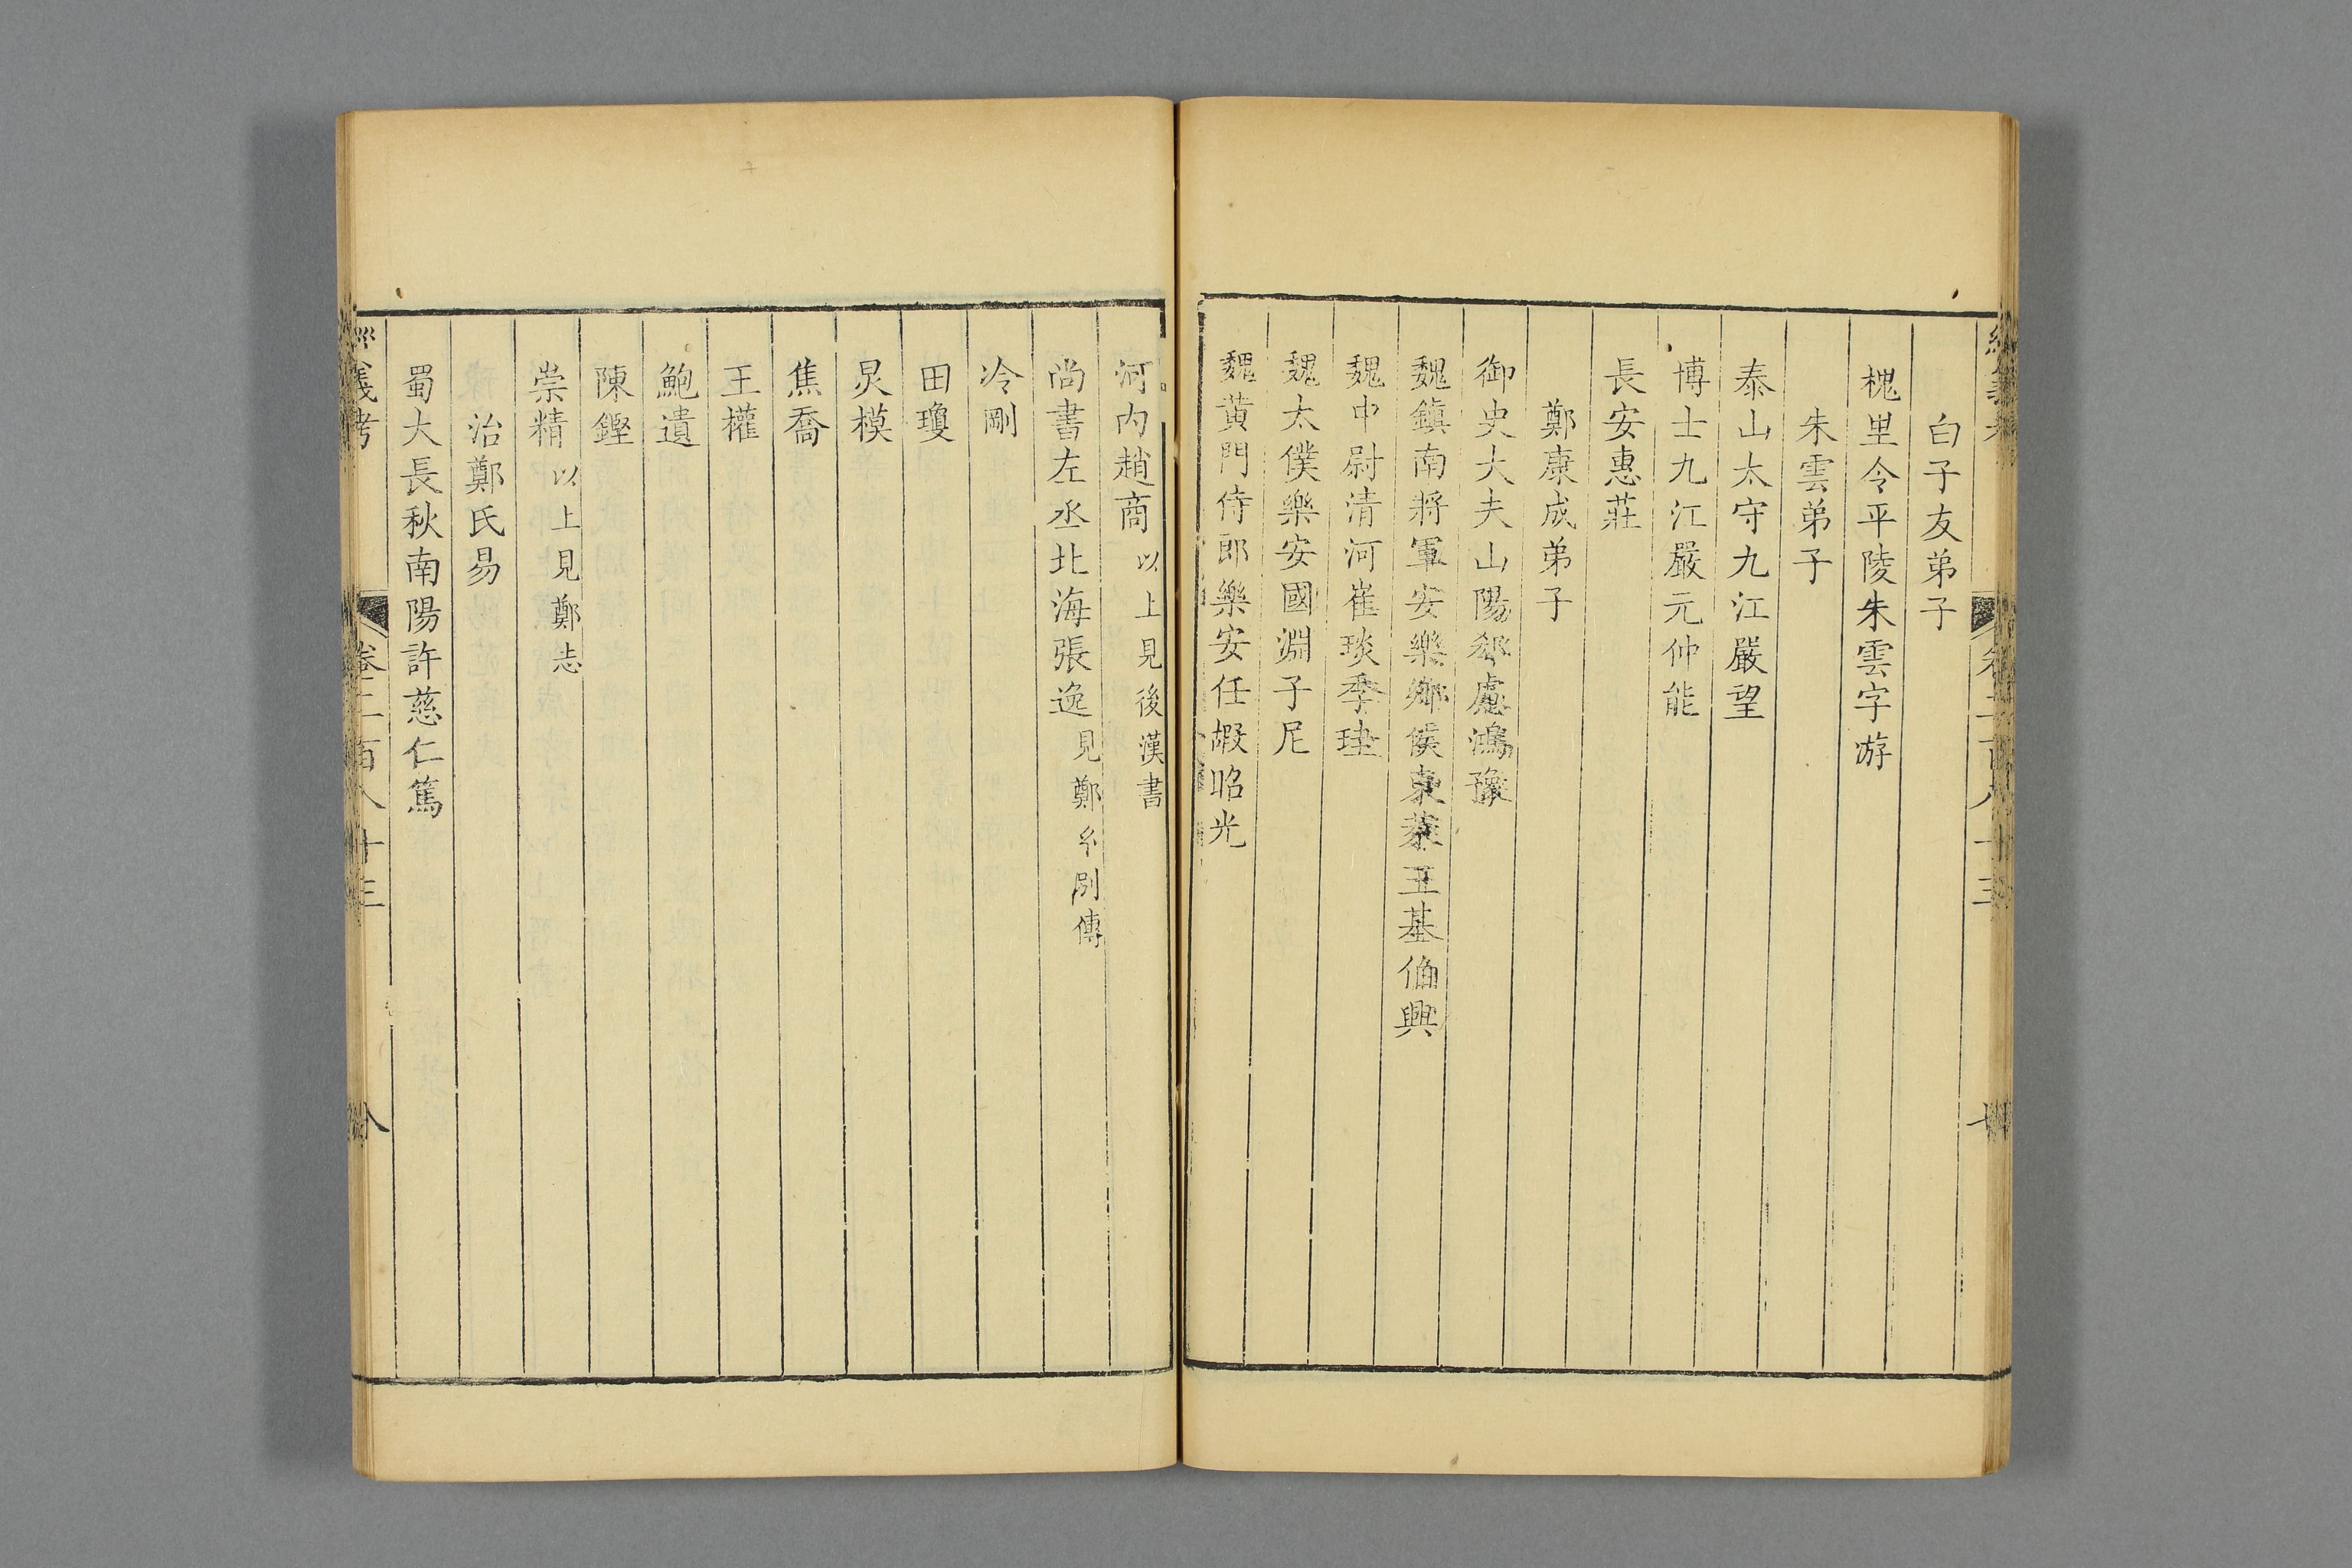 白子友弟子
槐里令平陵朱雲字游
朱雲弟子
泰山太守九江嚴望
博士九江嚴元仲能
長安惠莊
鄭康成弟子
御史大夫山陽郗慮鴻豫
魏鎮南將軍安樂鄉侯東萊王基伯輿
魏中尉清河崔琰季珪
魏太僕樂安國淵子尼
魏黃門侍郎樂安任嘏昭光
河内趙商以上見後漢書
尚書左丞北海張逸見鄭氏別傳
冷剛
田瓊
炅模
焦喬
王權
鮑遺
陳鏗
崇精以上見鄭志
治鄭氏易
蜀大長秋南陽許慈仁篤
經義考
卷二百八十三